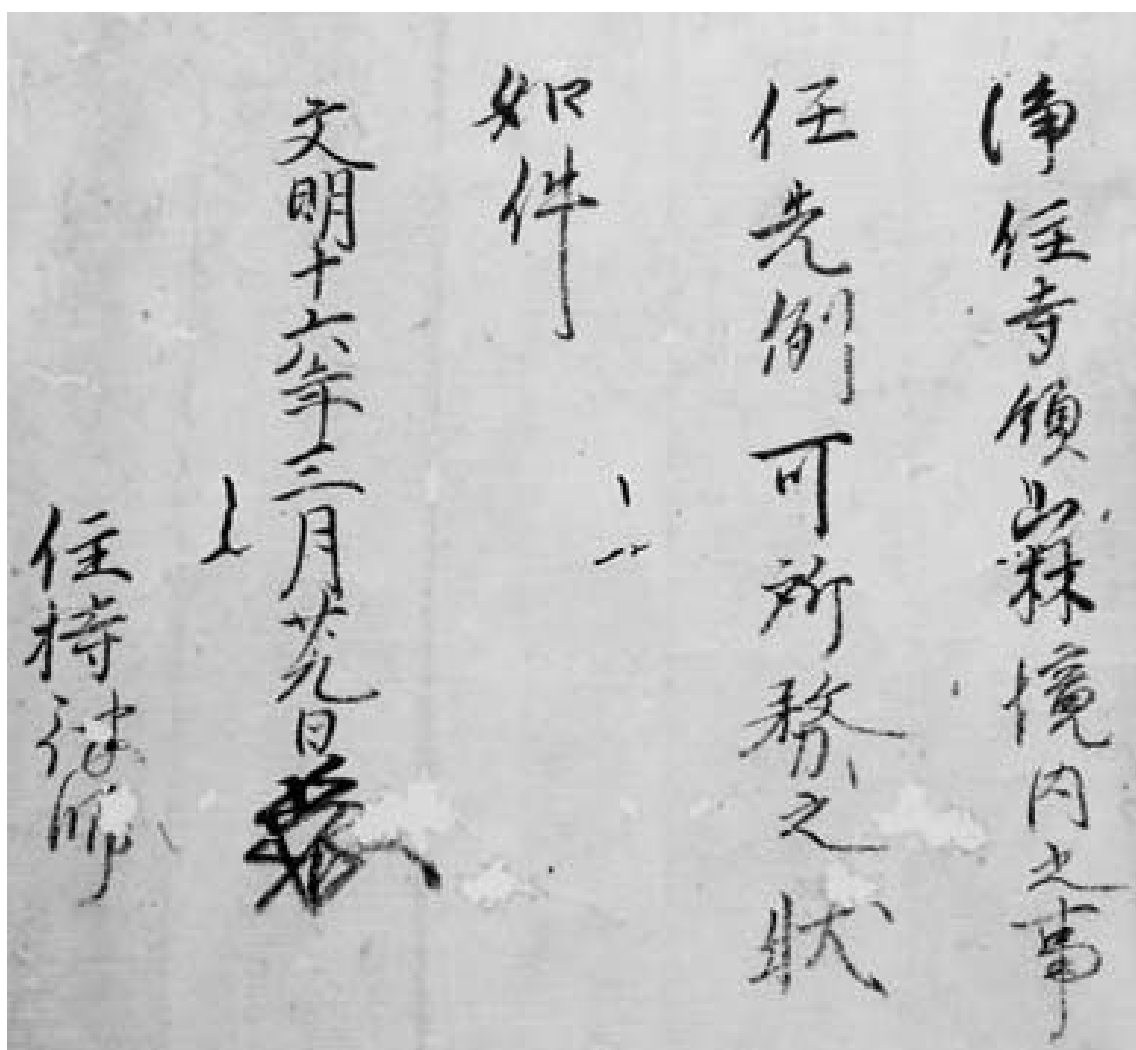 浄住寺領山林境内之事
任先例可所務之状
如件
文明十六年三月廿九日
住持禅師